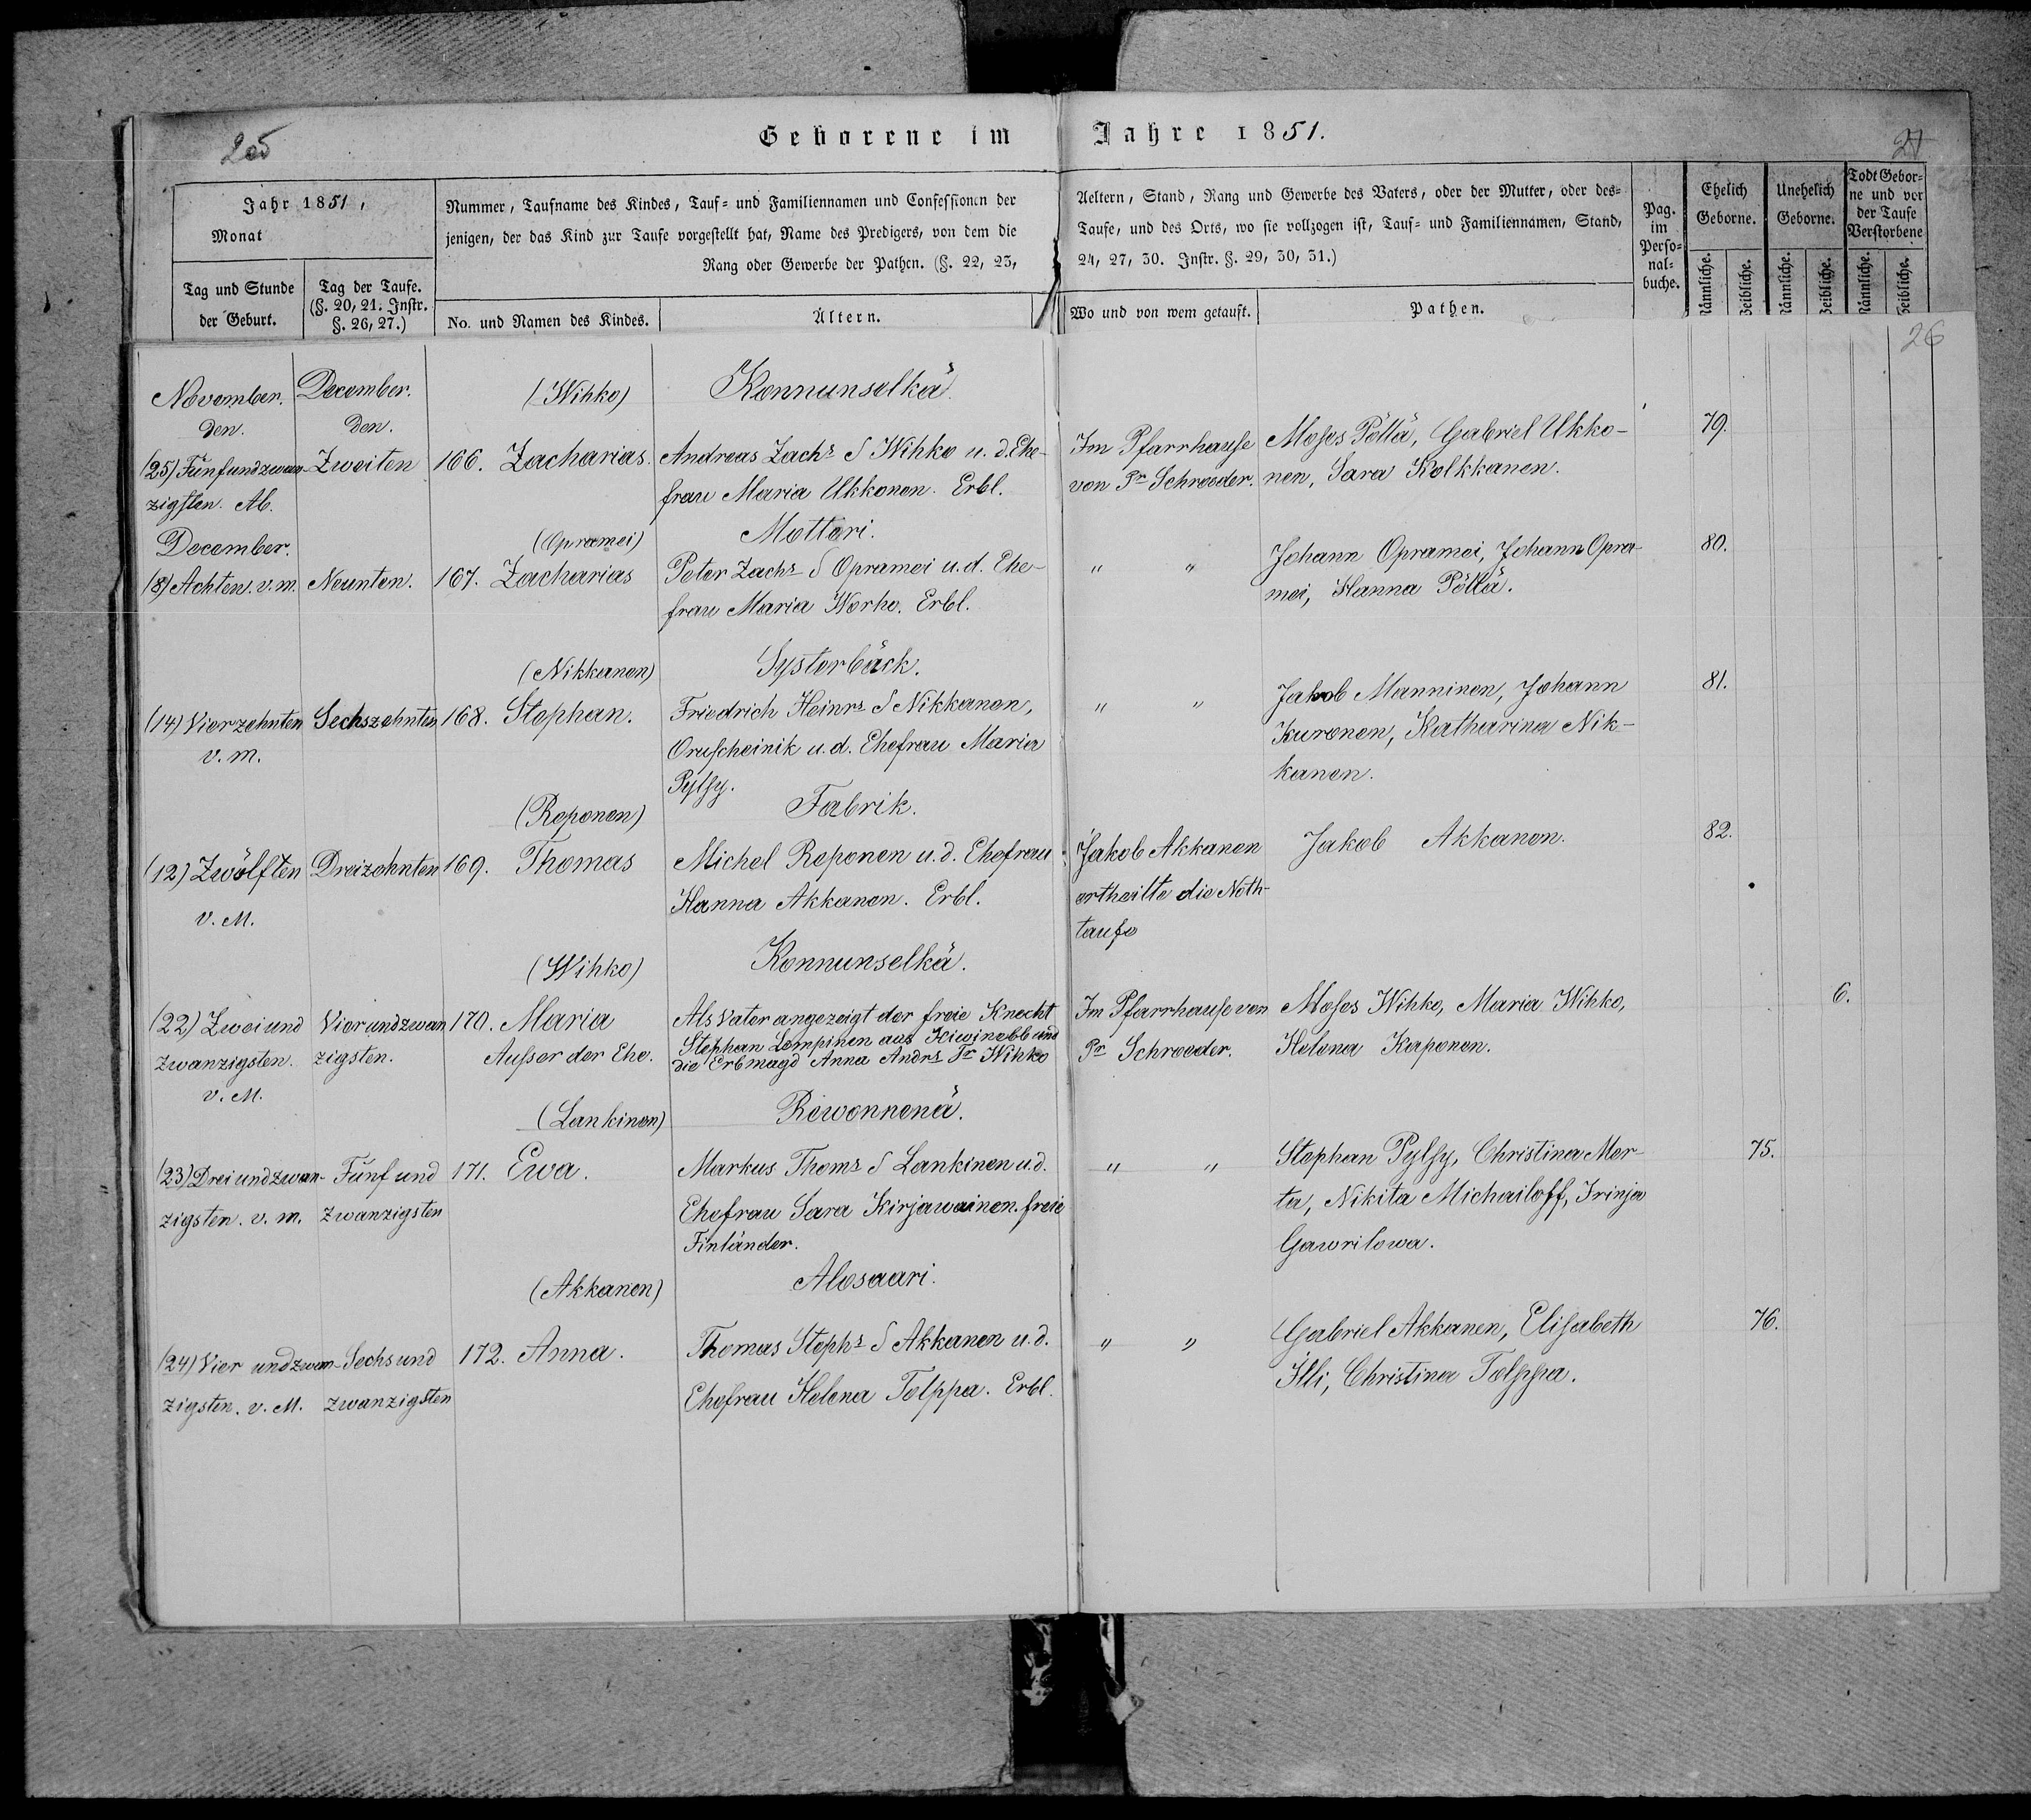 Geborene im Jahre 1851.
25
21
26
Jahr 1851,
Monat
Tag und Stunde
der Geburt.
Tag der Taufe.
(§. 20, 21. Instr.
§. 26, 27.)
Nummer, Taufname des Kindes, Tauf- und Familiennamen und Confessionen der
jenigen, der das Kind zur Taufe vorgestellt hat, Name des Predigers, von dem die
Rang oder Gewerbe der Pathen. (§. 22, 23,
No. und Namen des Kindes.
Ältern.
Aeltern, Stand, Rang und Gewerbe des Vaters, oder der Mutter, oder des-
Taufe, und des Orts, wo sie vollzogen ist, Tauf- und Familiennamen, Stand,
24, 27, 30. Instr. §. 29, 30, 31.)
Wo und von wem getauft.
Pathen.
Pag.
im
Perso-
nal-
buche.
Ehelich
Geborne.
Unehelich
Geborne.
Todt Gebor-
ne und vor
der Taufe
Verstorbene
Männliche.
Weibliche.
Männliche.
Weibliche.
Männliche.
Weibliche.
November.
den.
(25) Fünfundzwan-
zigsten. Ab.
December.
den.
Zweiten
(Wihko)
166. Zacharias.
Konnunselkä.
Andreas Zachs S Wihko u. d. Ehe-
frau Maria Ukkonen. Erbl.
Im Pfarrhause
von Pr Schroeder.
Moses Pöllä, Gabriel Ukko-
nen, Sara Kolkkanen.
79.
December.
(8) Achten. v. m.
Neunten.
(Opramei)
167. Zacharias
Mottori.
Peter Zachs S Opramei u. d. Ehe-
frau Maria Worho. Erbl.
" "
Johann Opramei, Johann Opra-
mei, Hanna Pöllä.
80.
(14) Vierzehnten
v. m.
Sechszehnten
(Nikkanen)
168. Stephan.
Systerbäck.
Friedrich Heinrs S Nikkanen,
Oruscheinik u. d. Ehefrau Maria
Pylsy.
" "
Jakob Manninen, Johann
Kuronen, Katharina Nik-
kanen.
81.
(12) Zwölften
v. M.
Dreizehnten
(Reponen)
169. Thomas
Fabrik.
Michel Reponen u. d. Ehefrau
Hanna Akkanen. Erbl.
Jakob Akkanen
ertheilte die Noth-
taufe
Jakob Akkanen.
82.
(22) Zwei und
zwanzigsten.
v. M.
Vierundzwan
zigsten.
(Wihko)
170. Maria
Ausser der Ehe.
Konnunselkä.
Als Vater angezeigt der freie Knecht
Stephan Lempinen aus Kiwinebb und
die Erbmagd Anna Andrs Tr Wihko
Im Pfarrhause von
Pr Schroeder.
Moses Wihko, Maria Wihko,
Helena Kaponen.
6.
(23) Dreiundzwan-
zigsten. v. m.
Fünf und
zwanzigsten
(Lankinen)
171. Ewa.
Rewonnenä.
Markus Thoms S Lankinen u. d.
Ehefrau Sara Kirjawainen. freie
Finländer.
" "
Stephan Pylsy, Christina Mer-
ta, Nikita Michailoff, Irinja
Gawrilowa.
75.
(24) Vier undzwan-
zigsten. v. M.
Sechs und
zwanzigsten
(Akkanen)
172. Anna.
Alosaari.
Thomas Stephs S Akkanen u. d.
Ehefrau Helena Tolppa. Erbl.
" "
Gabriel Akkanen, Elisabeth
Illi, Christina Tolppa.
76.